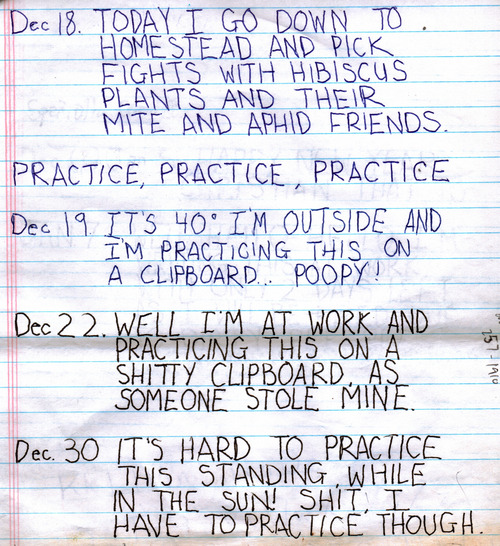 Dec 18. TODAY I GO DOWN TO
HOMESTEAD AND PICK
FIGHTS WITH HIBISCUS
PLANTS AND THEIR
MITE AND APHID FRIENDS.
PRACTICE, PRACTICE, PRACTICE
Dec 19. IT'S 40°. I'M OUTSIDE AND
I'M PRACTICING THIS ON
A CLIPBOARD... POOPY!
Dec 22. WELL I'M AT WORK AND
PRACTICING THIS ON A
SHITTY CLIPBOARD, AS
SOMEONE STOLE MINE.
Dec. 30 IT'S HARD TO PRACTICE
THIS STANDING, WHILE
IN THE SUN! SHIT, I
HAVE TO PRACTICE THOUGH.